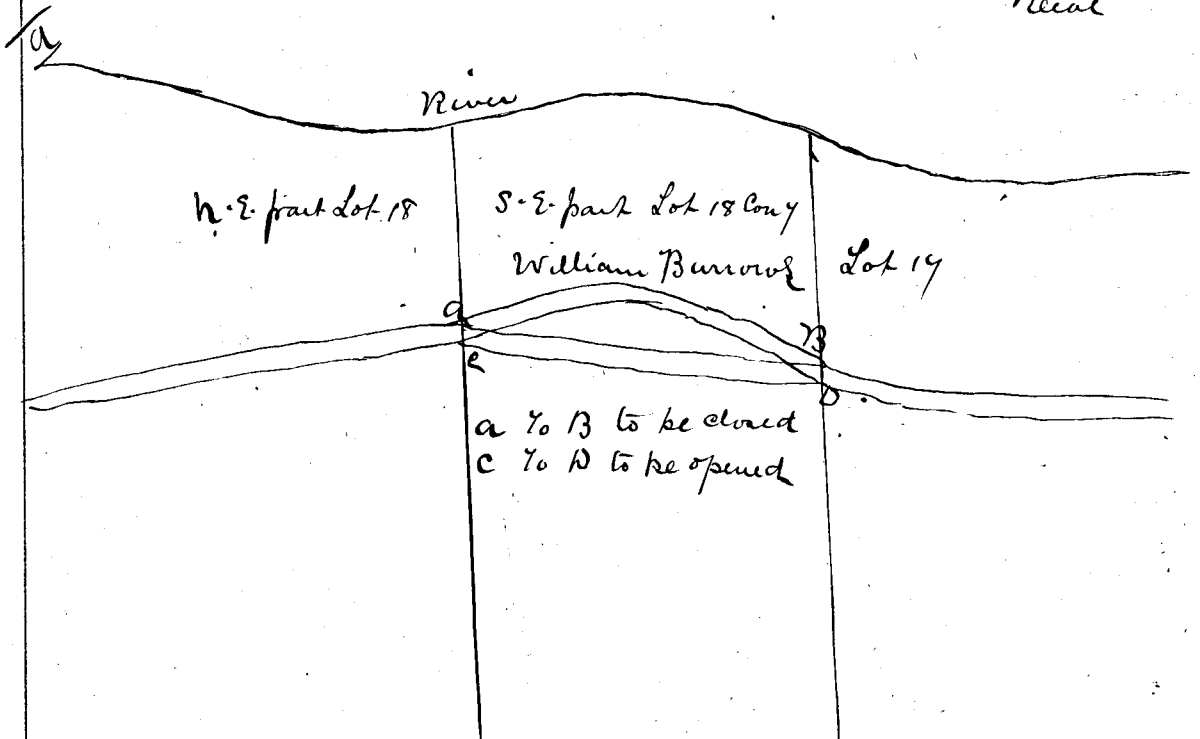 a
River
N.E. part Lot 18
S.E. part Lot 18 Con 7
William Burrows
Lot 17
a
B
c
D
a to B to be closed
C to D to be opened